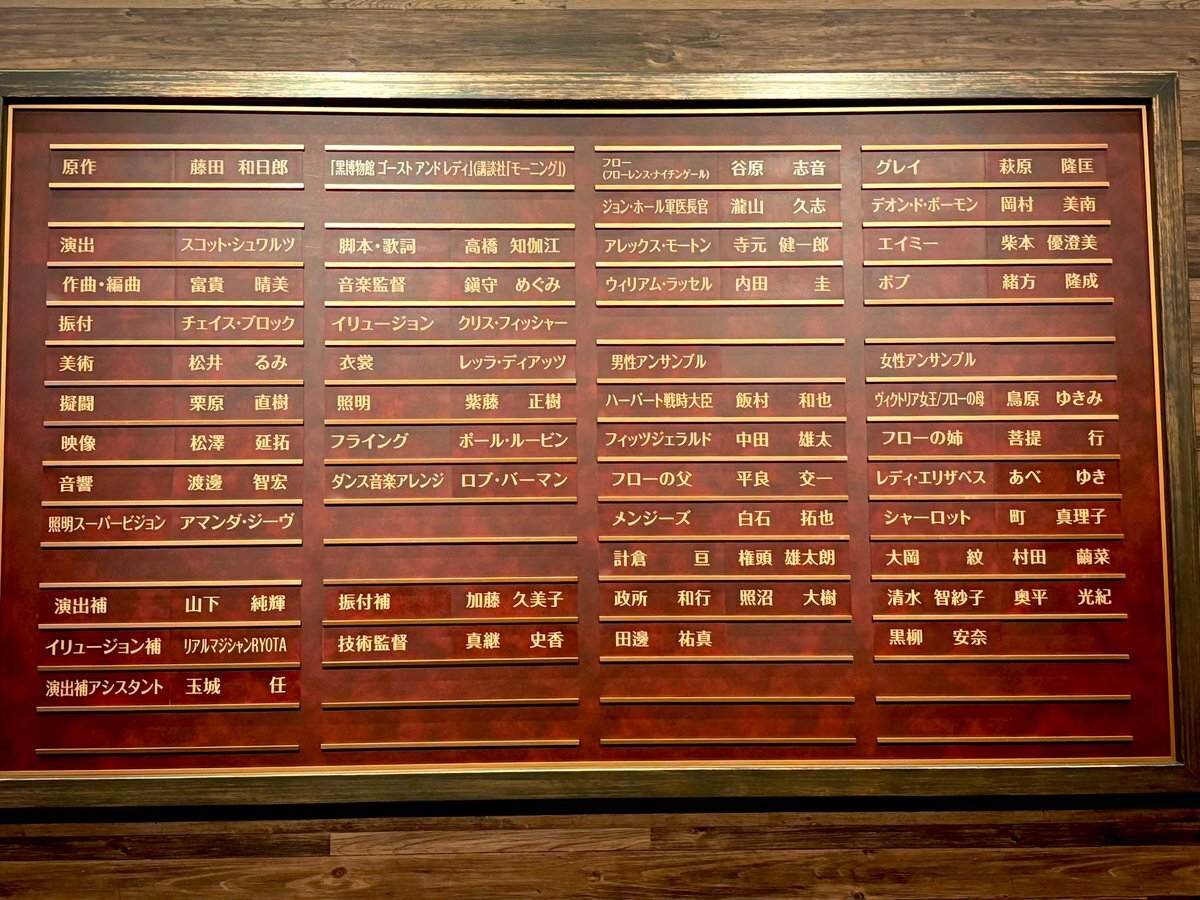 原作 藤田 和日郎
「黒博物館 ゴースト アンド レディ」(講談社「モーニング」)
演出 スコット・シュワルツ
脚本・歌詞 高橋 知伽江
作曲・編曲 富貴 晴美
音楽監督 鎭守 めぐみ
振付 チェイス・ブロック
イリュージョン クリス・フィッシャー
美術 松井 るみ
衣裳 レッラ・ディアッツ
擬闘 栗原 直樹
照明 紫藤 正樹
映像 松澤 延拓
フライング ポール・ルービン
音響 渡邊 智宏
ダンス音楽アレンジ ロブ・バーマン
照明スーパービジョン アマンダ・ジーヴ
演出補 山下 純輝
振付補 加藤 久美子
イリュージョン補 リアルマジシャンRYOTA
技術監督 真継 史香
演出補アシスタント 玉城 任
フロー
(フローレンス・ナイチンゲール) 谷原 志音
グレイ 萩原 隆匡
ジョン・ホール軍医長官 瀧山 久志
デオン・ド・ボーモン 岡村 美南
アレックス・モートン 寺元 健一郎
エイミー 柴本 優澄美
ウィリアム・ラッセル 内田 圭
ボブ 緒方 隆成
男性アンサンブル
ハーバート戦時大臣 飯村 和也
フィッツジェラルド 中田 雄太
フローの父 平良 交一
メンジーズ 白石 拓也
計倉 亘 権頭 雄太朗
政所 和行 照沼 大樹
田邊 祐真
女性アンサンブル
ヴィクトリア女王/フローの母 鳥原 ゆきみ
フローの姉 菩提 行
レディ・エリザベス あべ ゆき
シャーロット 町 真理子
大岡 紋 村田 繭菜
清水 智紗子 奥平 光紀
黒柳 安奈